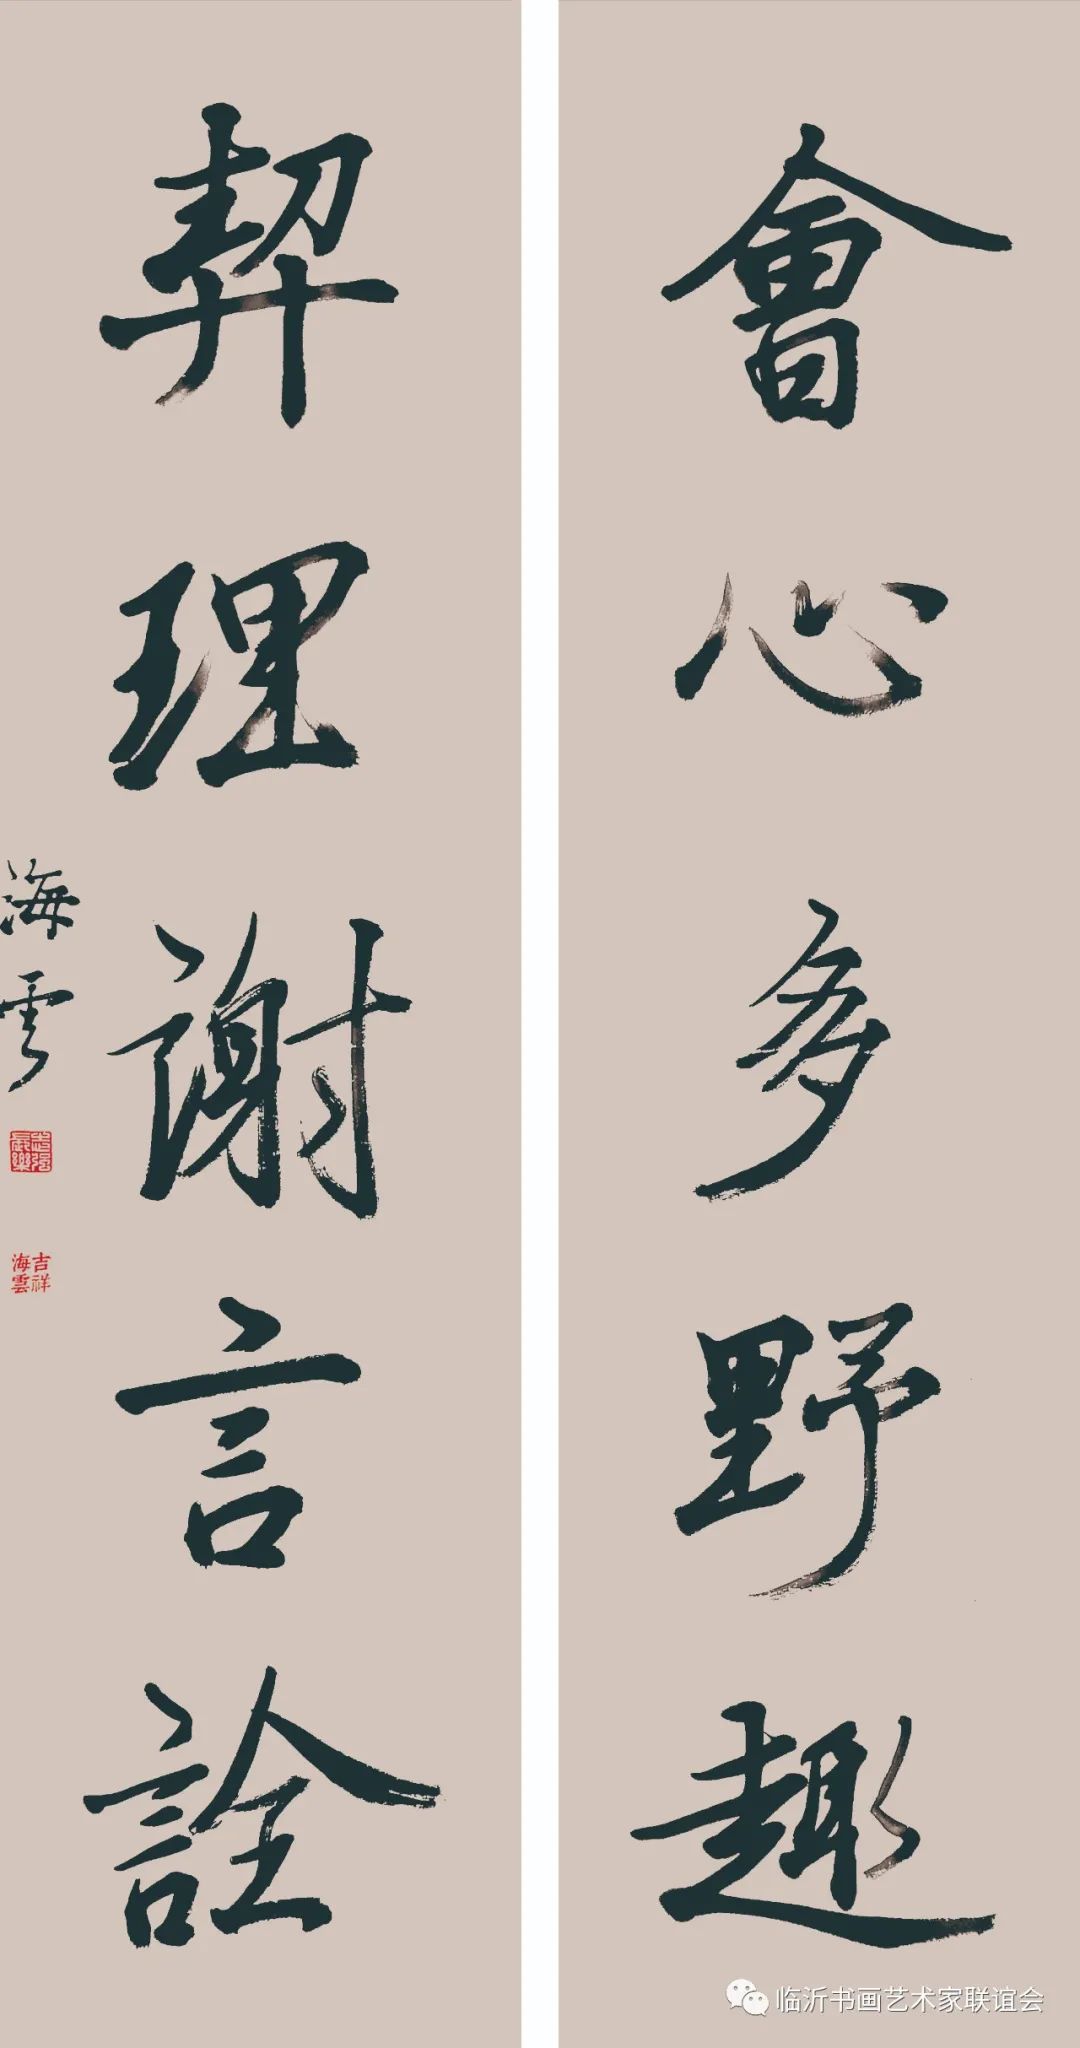 會心多野趣
契理謝言詮
海雲
吉祥
海雲
临沂书画艺术家联谊会